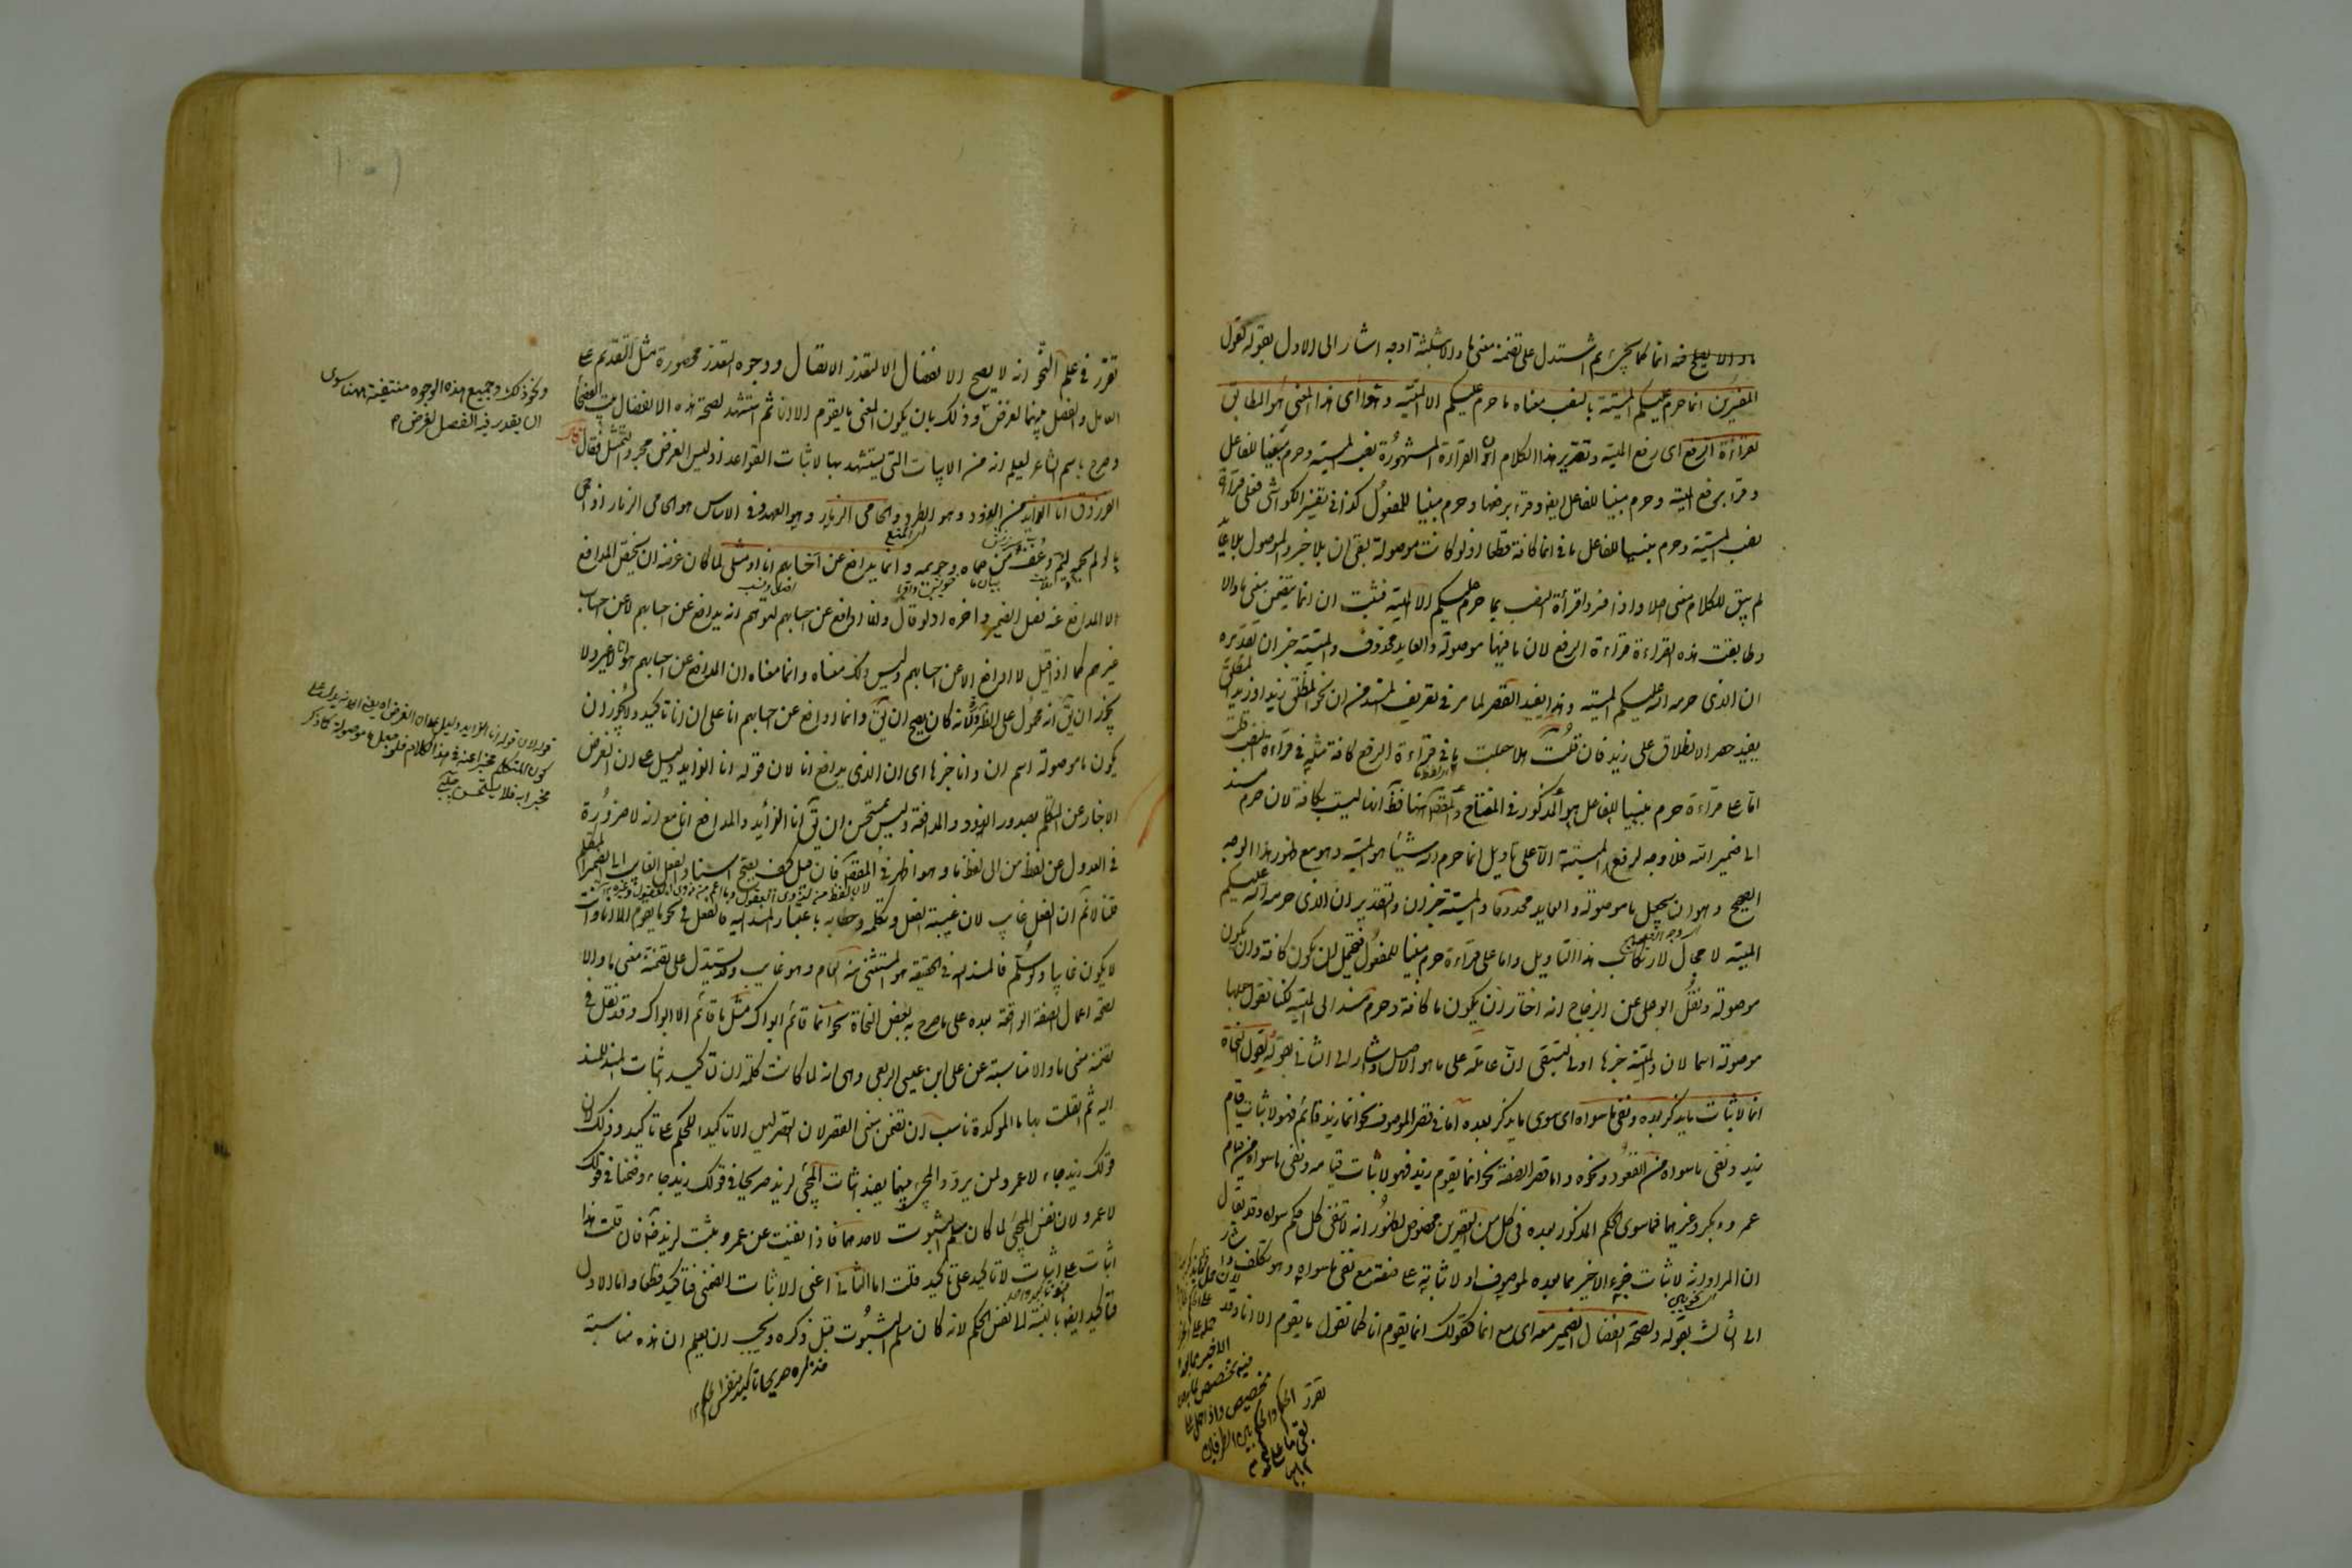 المفسرين انما حرم عليكم الميتة بالنصب معناه ما حرم عليكم الا الميتة وهو اى هذا المعنى هو المطابق
لقراءة الرفع اى رفع الميتة وتقرير هذا الكلام ان القراءة المشهورة نصب الميتة وحرم مبنيا للفاعل
وقرأ برفع الميتة وحرم مبنيا للفاعل ايضا وقرء برفعها وحرم مبنيا للمفعول كذا فى تفسير الكواشى فعلى قراءة
نصب الميتة وحرم مبنيا للفاعل ما فى انما كافة قطعا اذ لو كانت موصولة بقى ان بلا خبر والموصول بلا عائد
لم يبق للكلام معنى اصلا واذا فسروا قراءة النصب بما حرم عليكم الا الميتة فثبت ان انما يتضمن معنى ما والا
وطابقت هذه القراءة قراءة الرفع لان ما فيها موصولة والعايد محذوف والميتة خبر ان تقديره
ان الذى حرمه الله عليكم الميتة وهذا يفيد القصر لما مر فى تعريف المسند من ان نحو المنطلق زيد او زيد المنطلق
يفيد حصر الانطلاق على زيد فان قلت هلا جعلت ما فى قراءة الرفع كافة مثله فى قراءة النصب قلت
اما على قراءة حرم مبنيا للفاعل هو المذكور فى المفتاح فظ انها ليست بكافة لان حرم مسند
الى ضمير الله فلا وجه لرفع الميتة الا على تاويل انما حرم الله شيئا هو الميتة وهو مع ظهور هذا الوجه
الصحيح وهو ان يجعل ما موصولة والعايد محذوفا والميتة خبر ان والتقدير ان الذى حرمه الله عليكم
الميتة لا مجال لارتكاب هذا التاويل واما على قراءة حرم مبنيا للمفعول فيحتمل ان يكون كافة وان يكون
موصولة ونقل ابو على عن الزجاج انه اختار ان يكون ما كافة وحرم مسند الى الميتة لكنا نقول جعلها
موصولة اسما لان والميتة خبرها اولى لتبقى ان عاملة على ما هو الاصل واشار الى الثانى بقوله لقول النحاة
انما لاثبات ما يذكر بعده ونفى ما سواه اى سوى ما يذكر بعده اما فى قصر الموصوف نحو انما زيد قائم فهو لاثبات قيام
زيد ونفى ما سواه من القعود ونحوه واما قصر الصفة نحو انما يقوم زيد فهو لاثبات قيامه ونفى ما سواه من قيام
عمرو وبكر وغيرهما فما سوى الحكم المذكور بعده فى كل من القصرين مخصوص لظهور انه لا ينفى كل حكم سواه وقد يقال
ان المراد انه لاثبات جزء الاخير مما بعده لموصوف او لاثباته على صفته مع نفى ما سواه وهو تكلف
الى الثالث بقوله ولصحة انفصال الضمير معه اى مع انما كقولك انما يقوم انا كما تقول ما يقوم الا انا وقد
تقرر فى علم النحو انه لا يصح الانفصال الا لتعذر الاتصال ووجوه التعذر محصورة مثل التقديم على
العامل والفصل بينهما لغرض وذلك بان يكون المعنى ما يقوم الا انا ثم استشهد لصحة هذا الانفصال ببيت الفصحاء
وصرح باسم الشاعر ليعلم انه من الابيات التى يستشهد بها لاثبات القواعد اذ ليس الغرض مجرد التمثيل فقال قال
الفرزدق انا الذايد من الذود وهو الطرد والحامى الذمار وهو العهد وفى الاساس هو الحامى الذمار اذا حمى
ما لو لم يحمه ليم وعنف من حماه وحريمه وانما يدافع عن احسابهم انا او مثلى لما كان غرضه ان يخص المدافع
لا المدافع عنه فصل الضمير واخره اذ لو قال وانما ادافع عن احسابهم لتوهم انه يدافع عن احسابهم لا عن احساب
غيرهم كما اذا قيل لا ادافع الا عن احسابهم وليس ذلك معناه وانما معناه ان المدافع عن احسابهم هو انا لا غير ولا
يجوز ان يق انه محمول على الضرورة لانه كان يصح ان يق وانما ادافع عن احسابهم انا على ان انا تاكيد ولا يجوز ان
يكون ما موصولة اسم ان وانا خبرها اى ان الذى يدافع انا لان قوله انا الذايد دليل على ان الغرض
الاخبار عن المتكلم بصدور الذود والمدافعة وليس بمستحسن ان يق انا الذائد والمدافع انا مع انه لا ضرورة
فى العدول عن لفظ من الى لفظ ما وهو اظهر فى المقصود فان قيل كيف يصح اسناد الفعل الغايب الى ضمير المتكلم
قلنا لا نم ان الفعل غايب لان غيبة الفعل وتكلمه وخطابه باعتبار المسند اليه فالفعل فى نحو ما يقوم الا انا وانت
لا يكون غايبا ولو سلم فالمسند اليه فى الحقيقة هو المستثنى منه العام وهو غايب وقد يستدل على تضمنه معنى ما والا
بصحة اعمال الصفة الواقعة بعده على ما صرح به بعض النحاة نحو انما قائم ابواك مثل ما قائم الا ابواك وقد نقل فى
تضمنه معنى ما والا مناسبة عن على ابن عيسى الربعى وهى انه لما كانت كلمة ان لتاكيد اثبات المسند للمسند
اليه ثم اتصلت بها ما المؤكدة ناسب ان تضمن معنى القصر لان القصر ليس الا تاكيدا للحكم على تاكيد وذلك لان
قولك زيد جاء لا عمرو لمن يردد المجئ بينهما يفيد اثبات المجئ لزيد صريحا فى قولك زيد جاء وضمنا فى قولك
لا عمرو لان نفس المجئ لما كان مسلم الثبوت لاحدهما فاذا نفيت عن عمرو ثبت لزيد فان قلت هذا
اثبات على اثبات لا تاكيد على تاكيد قلت اما الثانى اعنى الاثبات الضمنى فتاكيد قطعا واما الاول
فتاكيد ايضا بالنسبة الى نفس الحكم لانه كان مسلم الثبوت قبل ذكره ويجب ان يعلم ان هذه مناسبة
ونحو ذلك وجميع هذه الوجوه منتفية ههنا سوى
ان يقدر فيه الفصل لغرض م